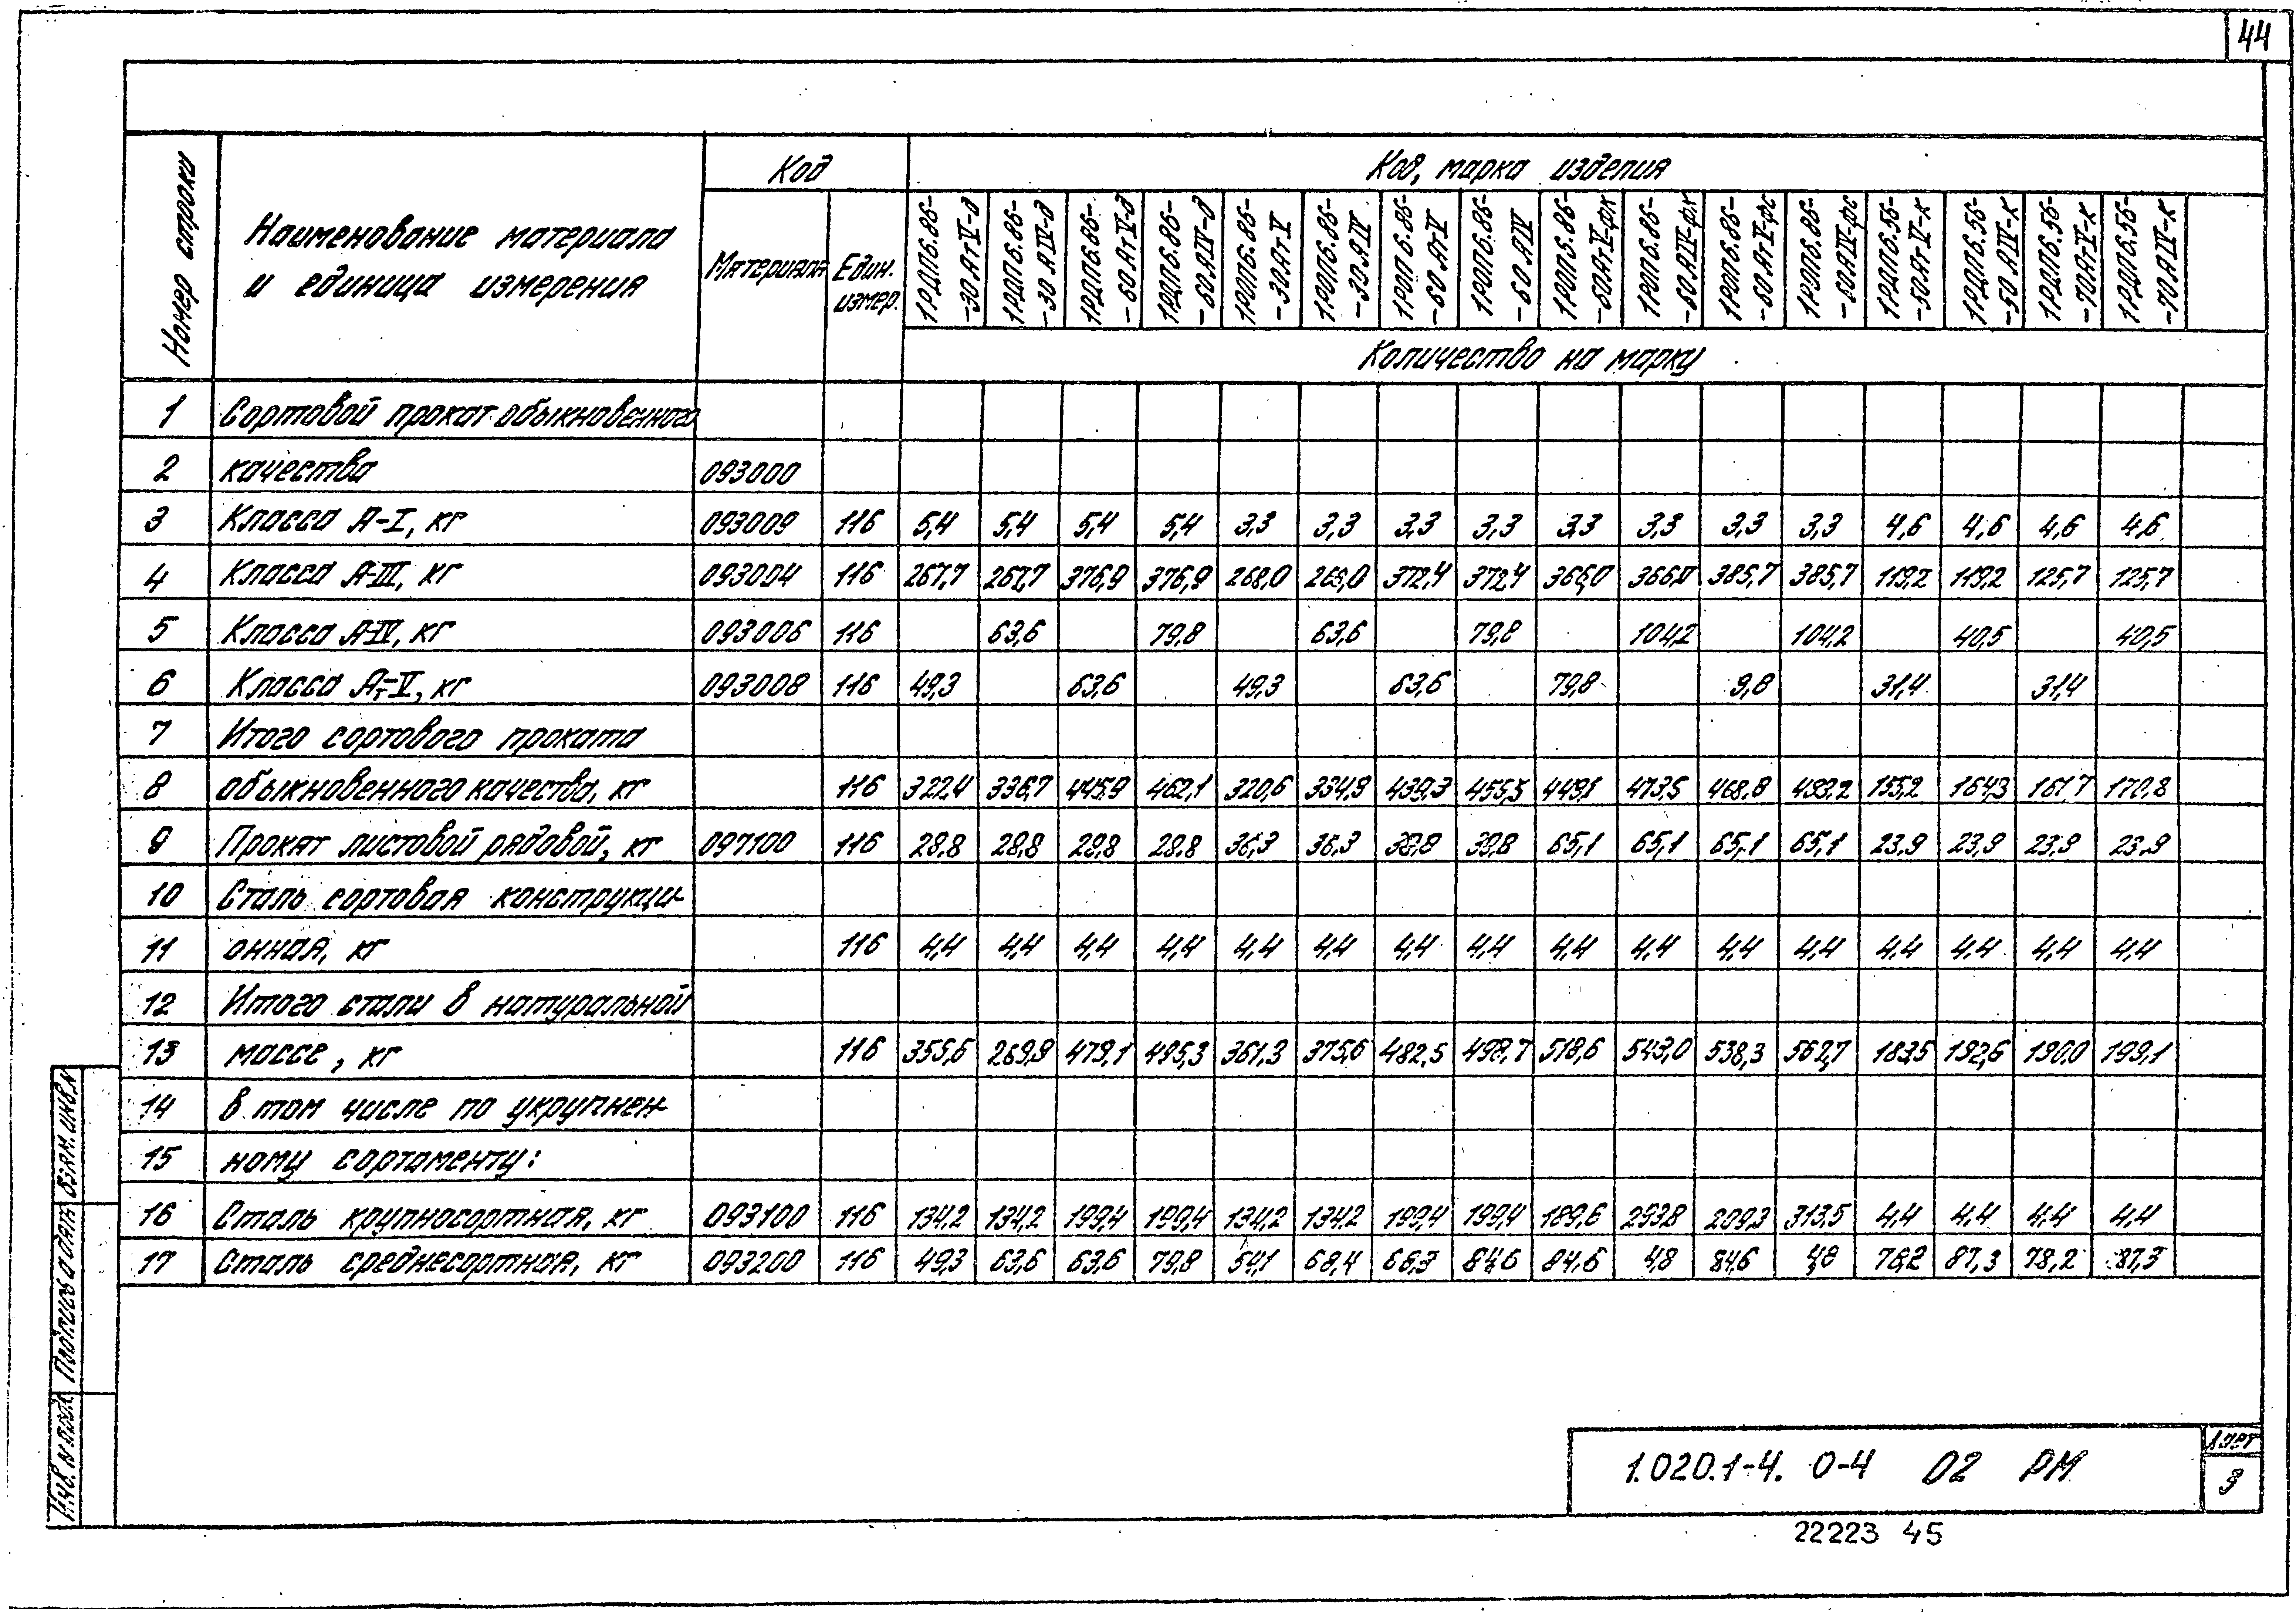 44
Номер строки
Наименование материала
и единица измерения
Код
Материала
Един.
измер.
Код, марка изделия
1РДП6.86-
-30АтV-д
1РДП6.86-
-30 АIV-д
1РДП6.86-
-60 АтV-д
1РДП6.86-
-60АIV-д
1РОП6.86-
-30АтV
1РОП6.86-
-30АIV
1РОП6.86-
-60 АтV
1РОП6.86-
-60 АIV
1РОП6.86-
-60АтV-фк
1РОП6.86-
-60АIV-фк
1РОП6.86-
-60АтV-фс
1РОП6.86-
-60АIV-фс
1РДП6.56-
-50Ат-V-к
1РДП6.56-
-50 АIV-к
1РДП6.56-
-70Ат-V-к
1РДП6.56-
-70АIV-к
Количество на марку
1 Сортовой прокат обыкновенного
2 качества 093000
3 Класса А-I, кг 093009 116 5,4 5,4 5,4 5,4 3,3 3,3 3,3 3,3 3,3 3,3 3,3 3,3 4,6 4,6 4,6 4,6
4 Класса А-III, кг 093004 116 267,7 267,7 376,9 376,9 268,0 268,0 372,4 372,4 366,0 366,0 385,7 385,7 119,2 119,2 125,7 125,7
5 Класса А-IV, кг 093006 116 63,6 79,8 63,6 79,8 104,2 104,2 40,5 40,5
6 Класса Ат-V, кг 093008 116 49,3 63,6 49,3 63,6 79,8 9,8 31,4 31,4
7 Итого сортового проката
8 обыкновенного качества, кг 116 322,4 336,7 445,9 462,1 320,6 334,9 439,3 455,5 449,1 473,5 468,8 493,2 155,2 164,3 161,7 170,8
9 Прокат листовой рядовой, кг 097100 116 28,8 28,8 28,8 28,8 36,3 36,3 38,8 38,8 65,1 65,1 65,1 65,1 23,9 23,9 23,9 23,9
10 Сталь сортовая конструкци-
11 онная, кг 116 4,4 4,4 4,4 4,4 4,4 4,4 4,4 4,4 4,4 4,4 4,4 4,4 4,4 4,4 4,4 4,4
12 Итого стали в натуральной
13 массе, кг 116 355,6 269,9 479,1 495,3 361,3 375,6 482,5 498,7 518,6 543,0 538,3 562,7 183,5 192,6 190,0 199,1
14 в том числе по укрупнен-
15 ному сортаменту:
16 Сталь крупносортная, кг 093100 116 134,2 134,2 199,4 199,4 134,2 134,2 199,4 199,4 189,6 293,8 209,3 313,5 4,4 4,4 4,4 4,4
17 Сталь среднесортная, кг 093200 116 49,3 63,6 63,6 79,8 54,1 68,4 68,3 84,6 84,6 4,8 84,6 4,8 78,2 87,3 78,2 87,3
Инв. N подл.
Подпись и дата
Взам. инв. N
1.020.1-4. 0-4 02 РМ
Лист
3
22223 45